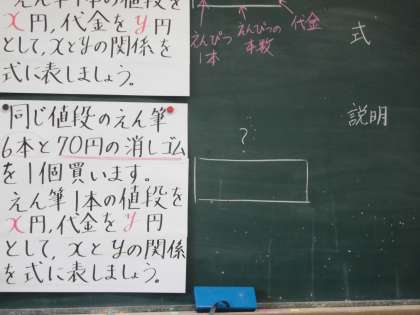 えん筆1本の値段を
x円,代金をy円
として,xとyの関係を
式に表しましょう。
同じ値段のえん筆
6本と70円の消しゴム
を1個買います。
えん筆1本の値段を
x円,代金をy円
として,xとyの関係
を式に表しましょう。
えんぴつ
1本
えんぴつの
本数
代金
式
説明
?